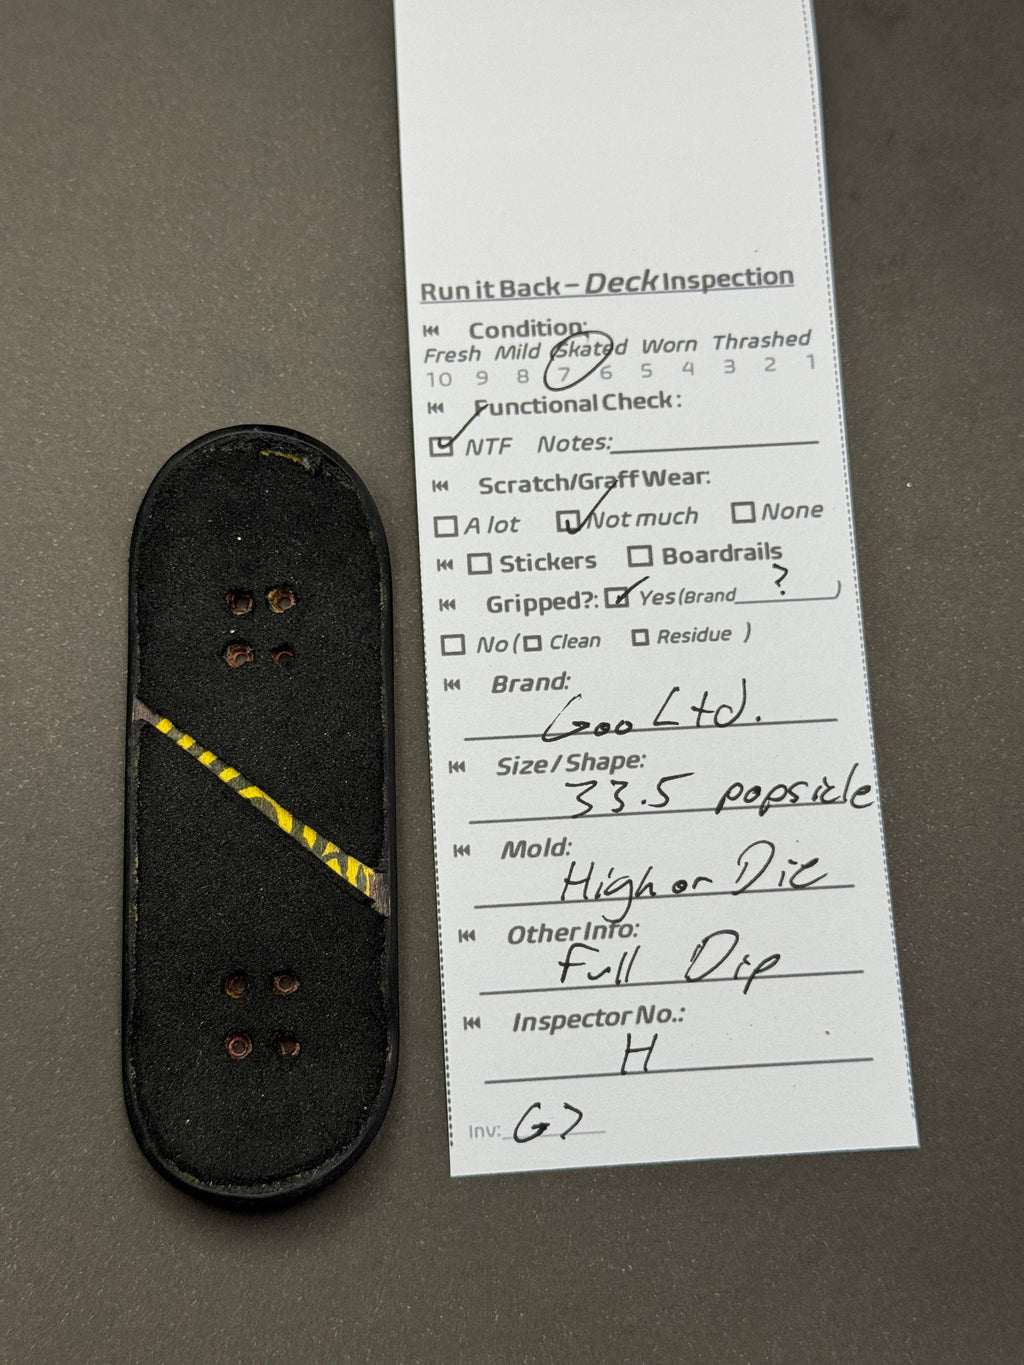 Run it Back – Deck Inspection
Condition:
Fresh Mild Skated Worn Thrashed
10 9 8 7 6 5 4 3 2 1
Functional Check:
NTF Notes:
Scratch/Graff Wear:
A lot Not much None
Stickers Boardrails
Gripped?: Yes (Brand ? )
No ( Clean Residue )
Brand:
Goo Ltd.
Size / Shape:
33.5 popsicle
Mold:
High or Die
Other Info:
Full Dip
Inspector No.:
H
Inv: G7